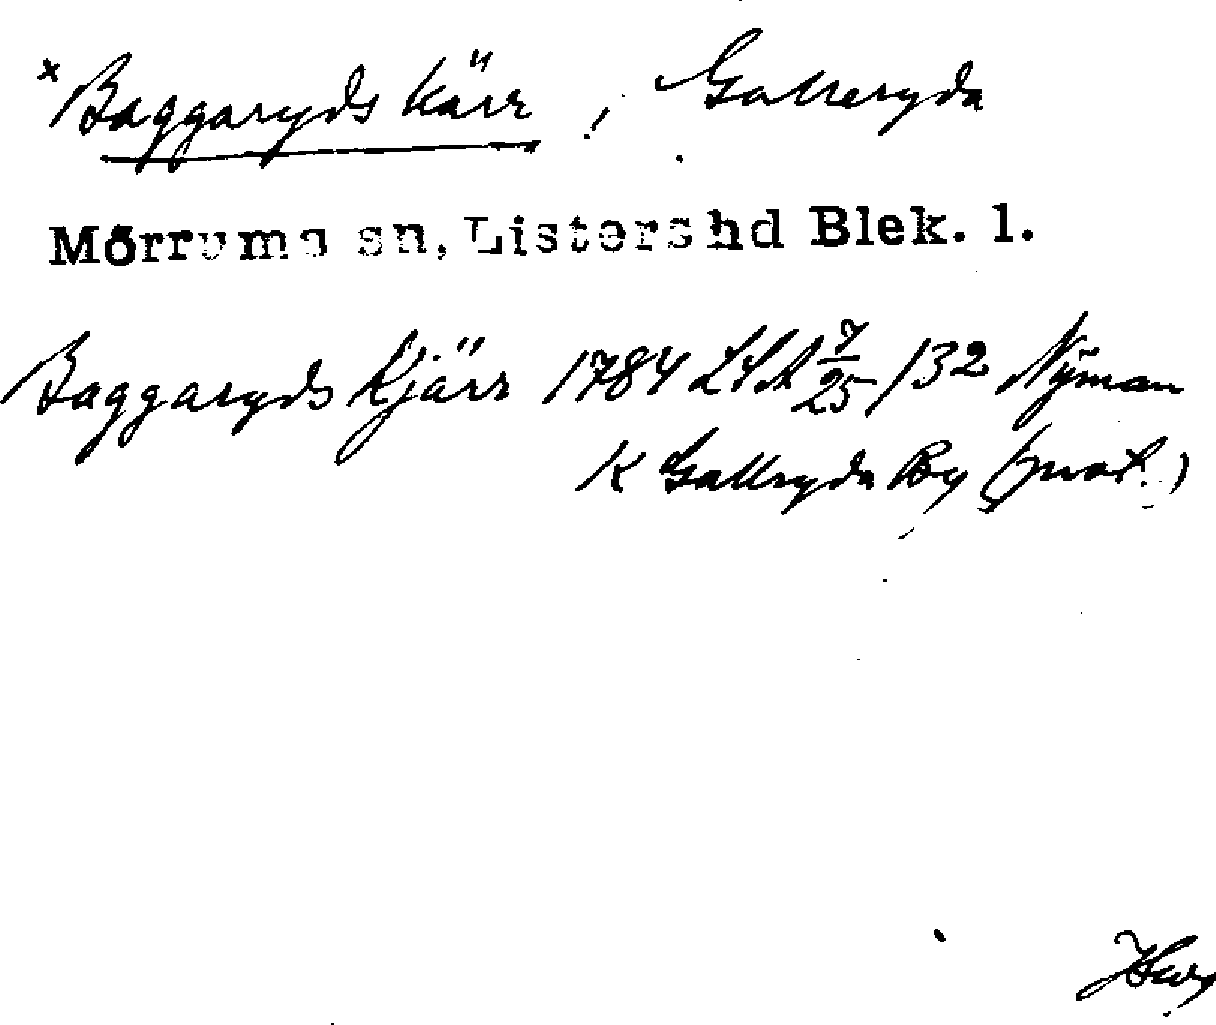 × Baggaryds kärr, Galleryda
Mörrums sn, Listers hd Blek. l.
Baggaryds Kjärr 1784 LSA 7/25 /32 Nÿman
K Gallryda By (prot.)